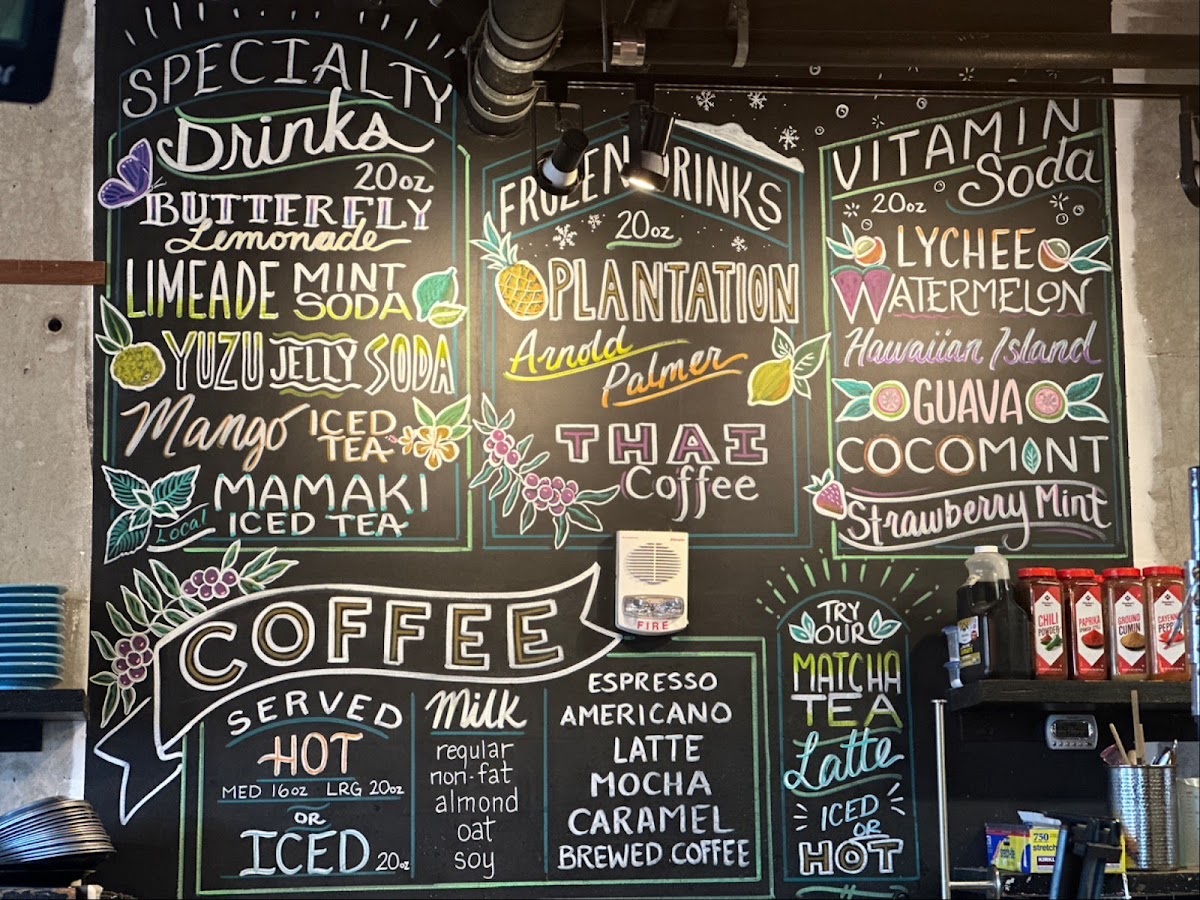 SPECIALTY
Drinks
20oz
BUTTERFLY
Lemonade
LIMEADE MINT
SODA
YUZU JELLY SODA
Mango ICED
TEA
MAMAKI
Local ICED TEA
FROZEN DRINKS
20oz
PLANTATION
Arnold
Palmer
THAI
Coffee
VITAMIN
Soda
20oz
LYCHEE
WATERMELON
Hawaiian Island
GUAVA
COCOMINT
Strawberry Mint
FIRE
COFFEE
SERVED
HOT
MED 16oz LRG 20oz
OR
ICED 20oz
Milk
regular
non-fat
almond
oat
soy
ESPRESSO
AMERICANO
LATTE
MOCHA
CARAMEL
BREWED COFFEE
TRY
OUR
MATCHA
TEA
Latte
ICED
OR
HOT
CHILI
POWDER
PAPRIKA
GROUND
CUMIN
CAYENNE
PEPPER
750
stretch